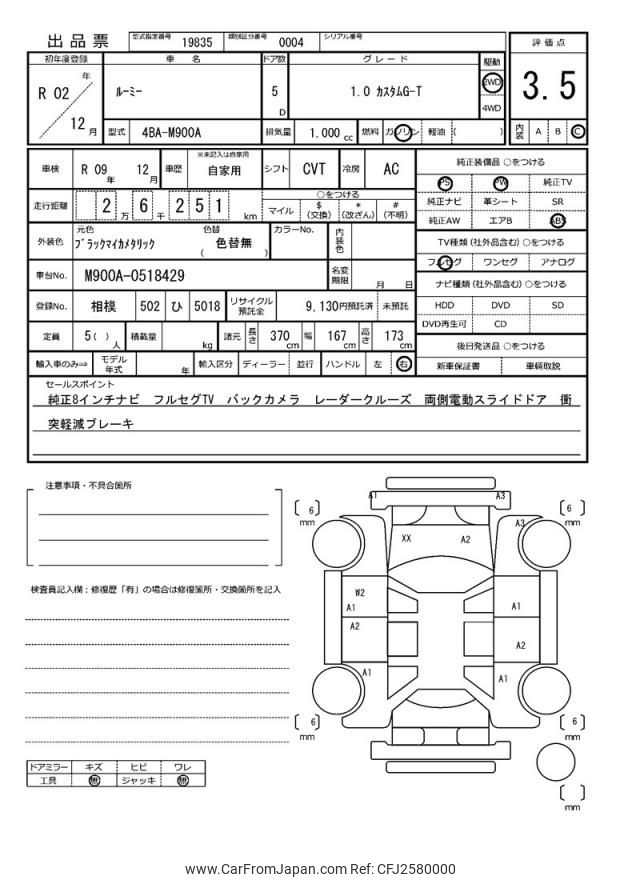 出品票 型式指定番号 19835 類別区分番号 0004 シリアル番号
初年度登録 車名 ドア数 グレード 駆動 評価点
R 02 年 12 月 ルーミー 5 D 1.0 カスタムG-T 2WD 4WD 3.5
型式 4BA-M900A 排気量 1.000 cc 燃料 ガソリン 軽油 ( ) 内装 A B C
車検 R 09 年 12 月 車歴 ※未記入は自家用 自家用 シフト CVT 冷房 AC
純正装備品 ○をつける
PS PW 純正TV
純正ナビ 革シート SR
純正AW エアB ABS
走行距離 2 万 6 千 2 5 1 km ○をつける
マイル $ (交換) * (改ざん) # (不明)
外装色 元色 ブラックマイカメタリック 色替 ( 色替無 ) カラーNo. 内装色
TV種類 (社外品含む) ○をつける
フルセグ ワンセグ アナログ
車台No. M900A-0518429 名変期限 月 日
ナビ種類 (社外品含む) ○をつける
HDD DVD SD
DVD再生可 CD
登録No. 相模 502 ひ 5018 リサイクル預託金 9,130円預託済 未預託
定員 5 ( ) 人 積載量 kg 諸元 長さ 370 cm 幅 167 cm 高さ 173 cm
後日発送品 ○をつける
新車保証書 車輌取説
輸入車のみ⇒ モデル年式 年 輸入区分 ディーラー 並行 ハンドル 左 右
セールスポイント
純正8インチナビ フルセグTV バックカメラ レーダークルーズ 両側電動スライドドア 衝
突軽減ブレーキ
注意事項・不具合箇所
検査員記入欄：修復歴「有」の場合は修復箇所・交換箇所を記入
A1 A3
6 mm 6 mm
A3
XX A2
W2
A1 A1
A2
A2
A1 A1
6 mm 6 mm
mm
ドアミラー キズ ヒビ ワレ
工具 無 ジャッキ 無
www.CarFromJapan.com Ref: CFJ2580000